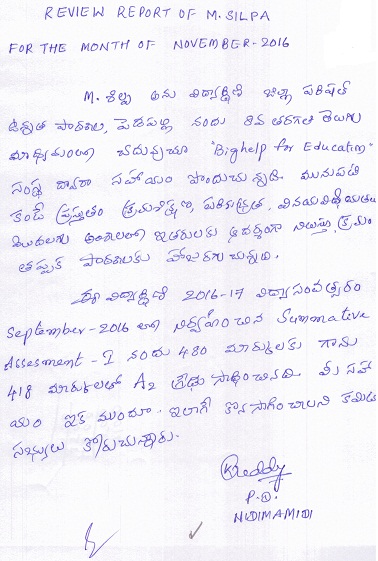 REVIEW REPORT OF M. SILPA
FOR THE MONTH OF NOVEMBER-2016
M. శిల్ప అను విద్యార్థిణి జిల్లా పరిషత్
ఉన్నత పాఠశాల, పెడపల్లి నందు 8వ తరగతి తెలుగు
మాధ్యమంలో చదువుచూ "Bighelp for Education"
సంస్థ ద్వారా సహాయం పొందుచున్నది. మునుపటి
కంటే ప్రస్తుతం క్రమశిక్షణ, పరిశుభ్రత, వినయవిధేయతలు
మొదలగు అంశాలలో ఇతరులకు ఆదర్శంగా నిలుస్తూ, క్రమం
తప్పక పాఠశాలకు హాజరగుచున్నది.
ఈ విద్యార్థిణి 2016-17 విద్యాసంవత్సరం
September-2016 లో నిర్వహించిన Summative
Assesment-I నందు 480 మార్కులకు గాను
418 మార్కులతో A2 గ్రేడు సాధించినది. మీ సహా
యం ఇక ముందూ ఇలాగే కొనసాగించాలని కమిటి
సభ్యులు కోరుచున్నారు.
KReddy
P.D.
NIDIMAMIDI